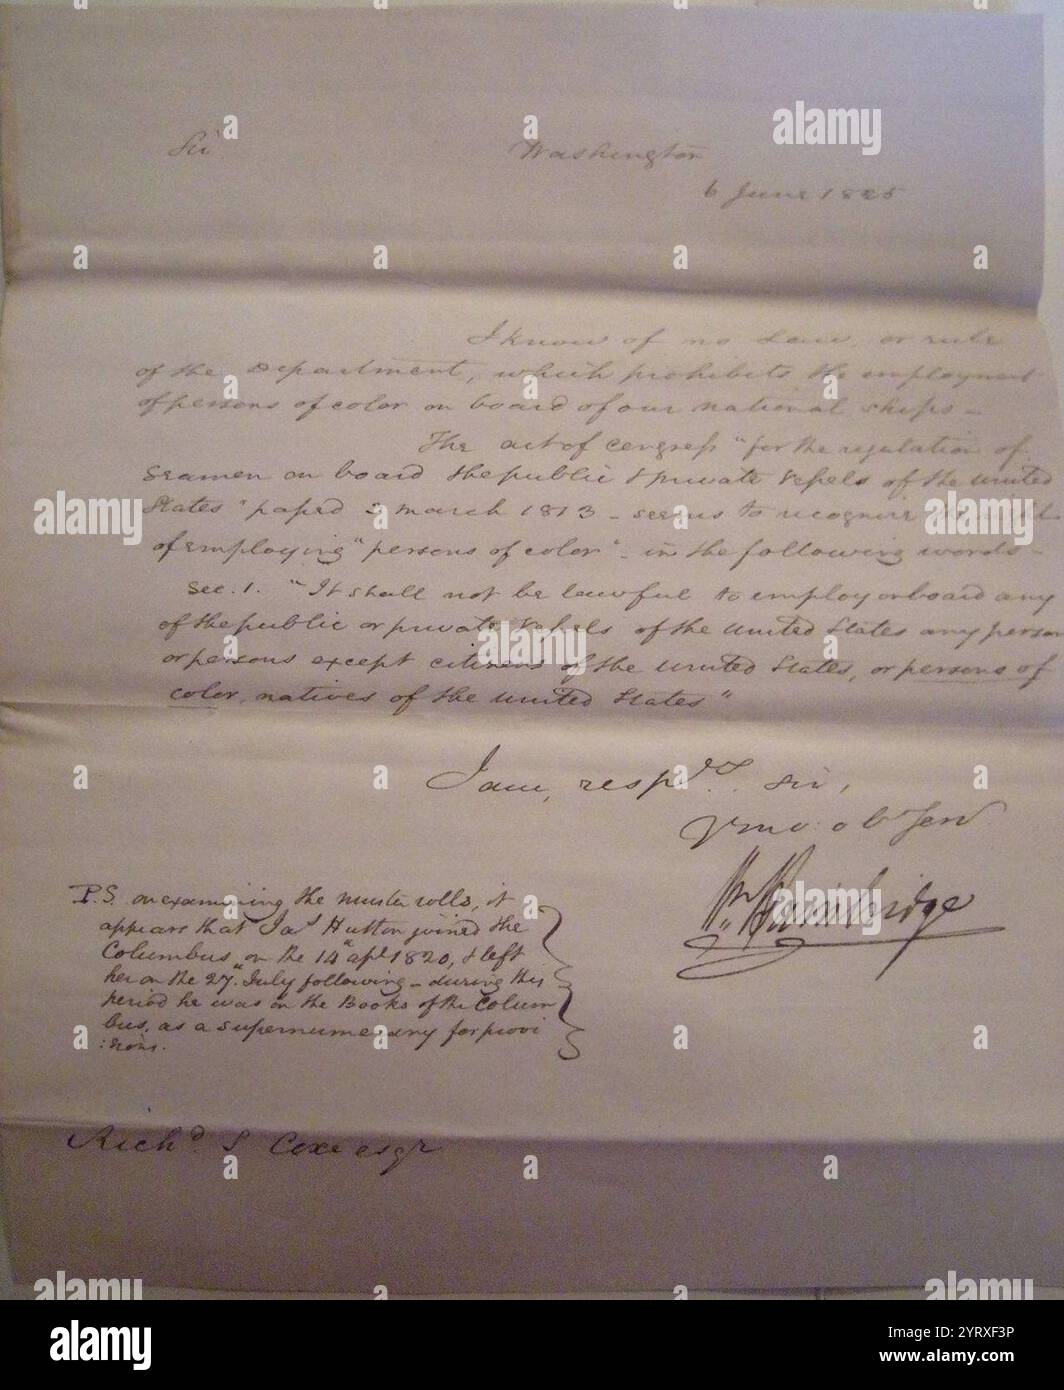 Sir
Washington
6 June 1825
I know of no Law, or rule
of the Department, which prohibits the employment
of persons of color on board of our national ships_
The act of Congress "for the regulation of
Seamen on board the public & private Vessels of the United
States" passed 3 March 1813 _ seems to recognize the right
of employing "persons of color" _ in the following words _
Sec. 1. "It shall not be lawful to employ on board any
of the public or private Vessels of the United States any person
or persons except citizens of the United States, or persons of
color, natives of the United States"
I am, respd. Sir,
Yr mo: ob Serv
Wm Bainbridge
P.S. on examining the muster rolls, it
appears that Jas Hutton joined the
Columbus, on the 14th apl 1820, & left
her on the 27th July following _ during this
period he was on the Books of the Colum
bus, as a supernumerary for provi
:sions.
Richd. S Coxe esqr
alamy
Image ID: 2YRXF3P
www.alamy.com